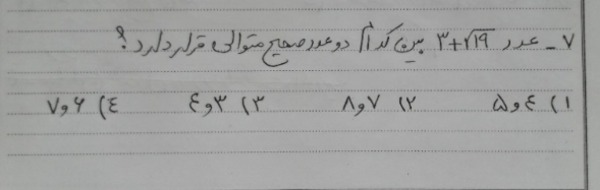 ۷ - عدد ۳+√۱۹ بین کدام دو عدد صحیح متوالی قرار دارد؟
۱) ٤ و ۵ ۲) ۷ و ۸ ۳) ۳ و ٤ ٤) ۶ و ۷